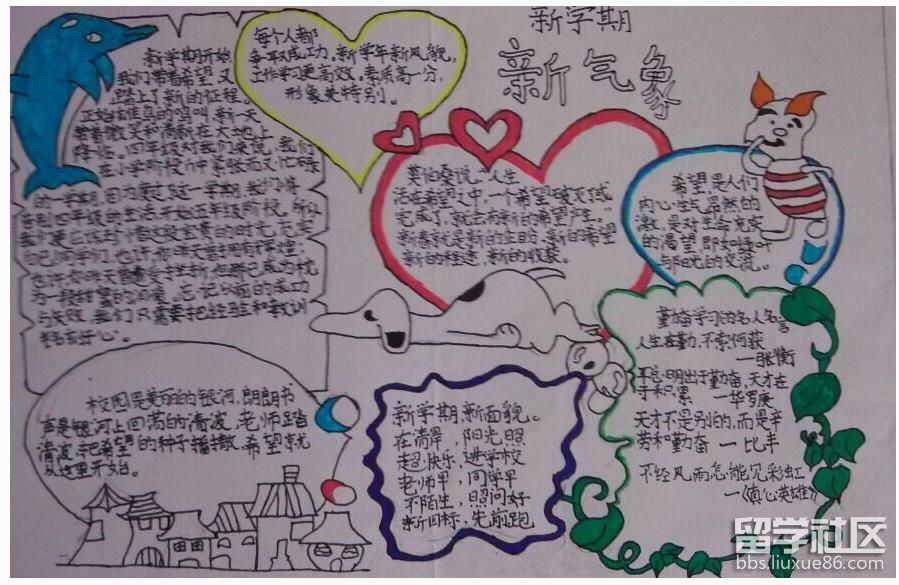 新学期
新气象
新学期开始
我们带着希望又
踏上了新的征程。
新一天
带着微笑和清新在大地上
降临。四年级对我们来说,我们
在小学阶段
的一学期,因为度过这一学期,我们将
告别四年级的生活,开始五年级阶段。所以
我们更应该珍惜这段宝贵的时光,充实
自己。同学们,也许,你昨天曾拥有辉煌;
也许,你昨天曾遭受挫折,但那已成为枕
为一段甜蜜的回凰。忘记以前的成功
与失败,我们只需要把经验和教训
铭刻于心。
每个人都
争取成功。新学年新风貌,
工作学习更高效。素质高一分,
形象美特别。
莫伯桑说:人生
活在希望之中,一个希望破灭了或
完成了,就会有新的希望产生。
新春就是新的企目的,新的希望
新的征途,新的收获。
希望,是人们
内心生气盎然的
激,是对生命充实
的渴望,即如嫩叶
与阳光的交流。
校园是美丽的银河,朗朗书
声是银河上回荡的清波,老师踏
清波,把希望的种子播撒,希望就
从这里开始。
新学期,新面貌。
在清晨,阳光照
趁快乐,进学校
老师早,同学早
不陌生,照问好
新目标,先前跑
勤奋学习的名人名言
人生在勤,不索何获
—张衡
聪明出于勤奋,天才在
于积累 —华罗庚
天才不是别的,而是辛
劳和勤奋 —比丰
不经风雨怎能见彩虹
—《真心英雄》
留学社区
bbs.liuxue86.com